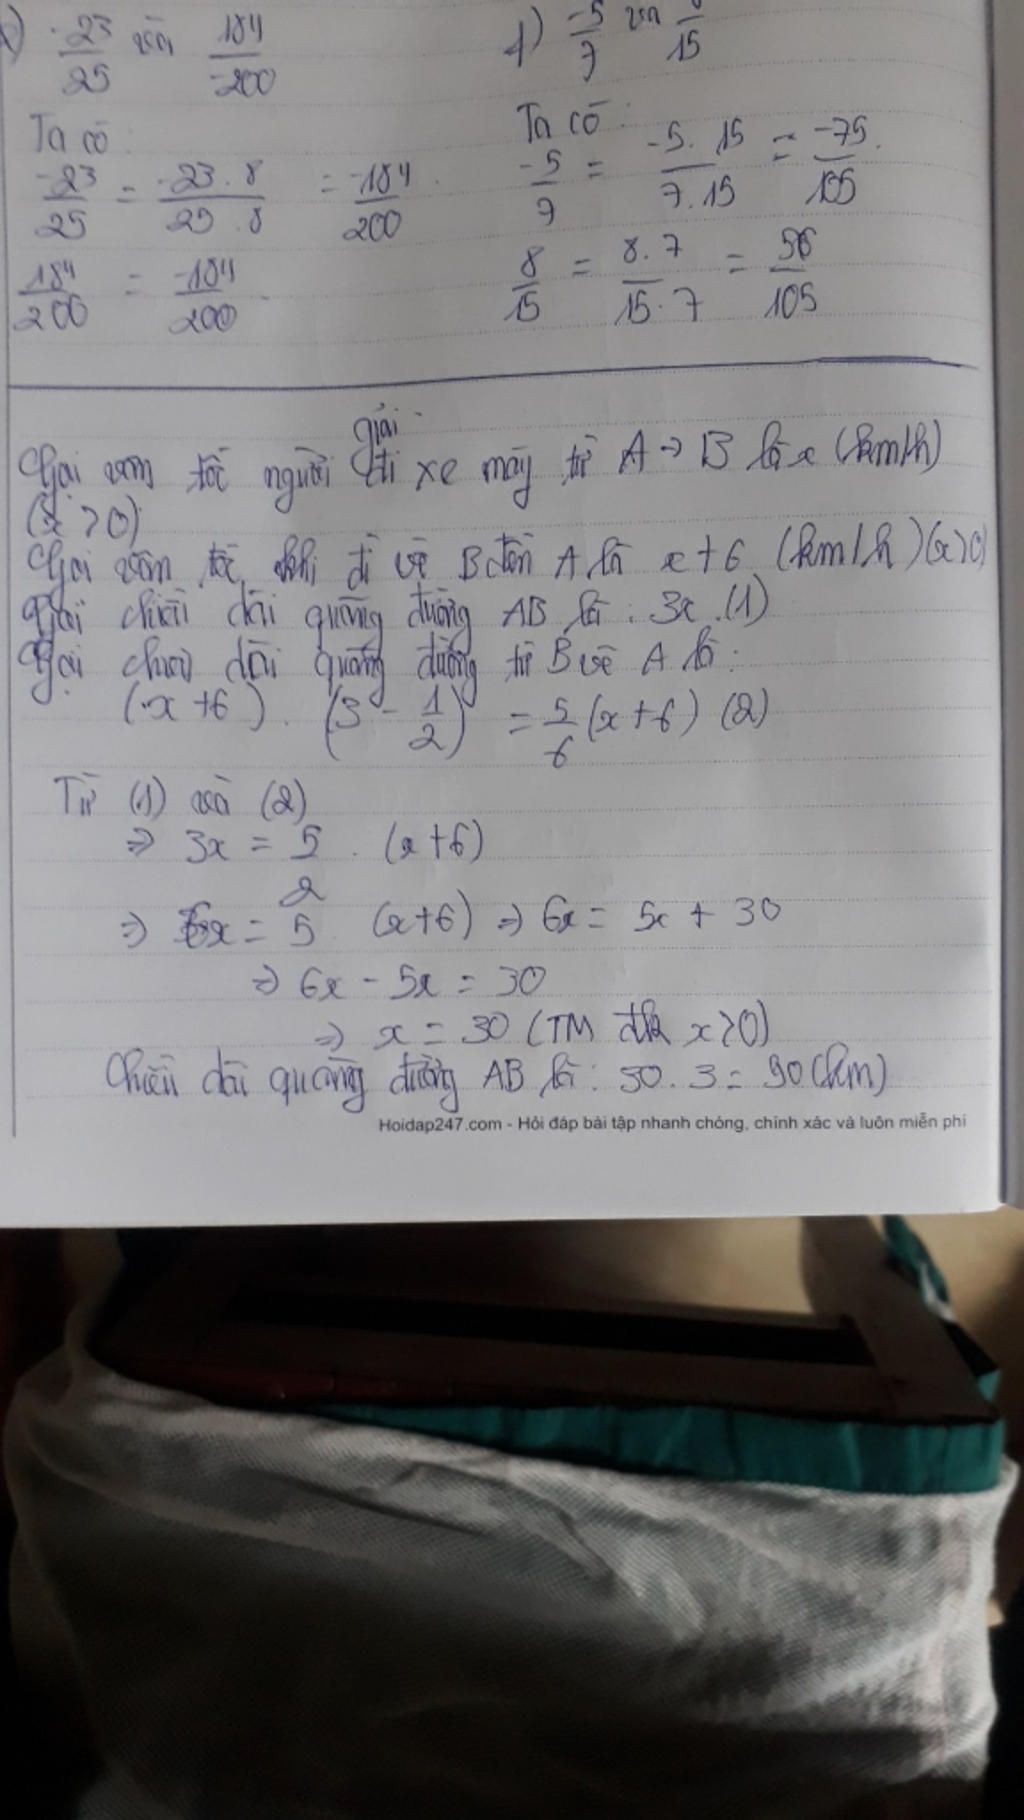 -23/25 và 184/-200
Ta có:
-23/25 = -23.8/25.8 = -184/200
184/200 = -184/200
f) -5/7 và 8/15
Ta có:
-5/7 = -5.15/7.15 = -75/105
8/15 = 8.7/15.7 = 56/105
giải
Gọi vận tốc người đi xe máy từ A → B là x (km/h)
(x > 0)
Gọi vận tốc khi đi về B đến A là x+6 (km/h) (x>0)
Gọi chiều dài quãng đường AB là: 3x (1)
Gọi chiều dài quãng đường từ B về A là:
(x+6). (3 - 1/2) = 5/6 (x+6) (2)
Từ (1) và (2)
⇒ 3x = 5/2 . (x+6)
⇒ 6x = 5 (x+6) ⇒ 6x = 5x + 30
⇒ 6x - 5x = 30
⇒ x = 30 (TM đk x>0)
Chiều dài quãng đường AB là: 30.3 = 90 (km)
Hoidap247.com - Hỏi đáp bài tập nhanh chóng, chính xác và luôn miễn phí